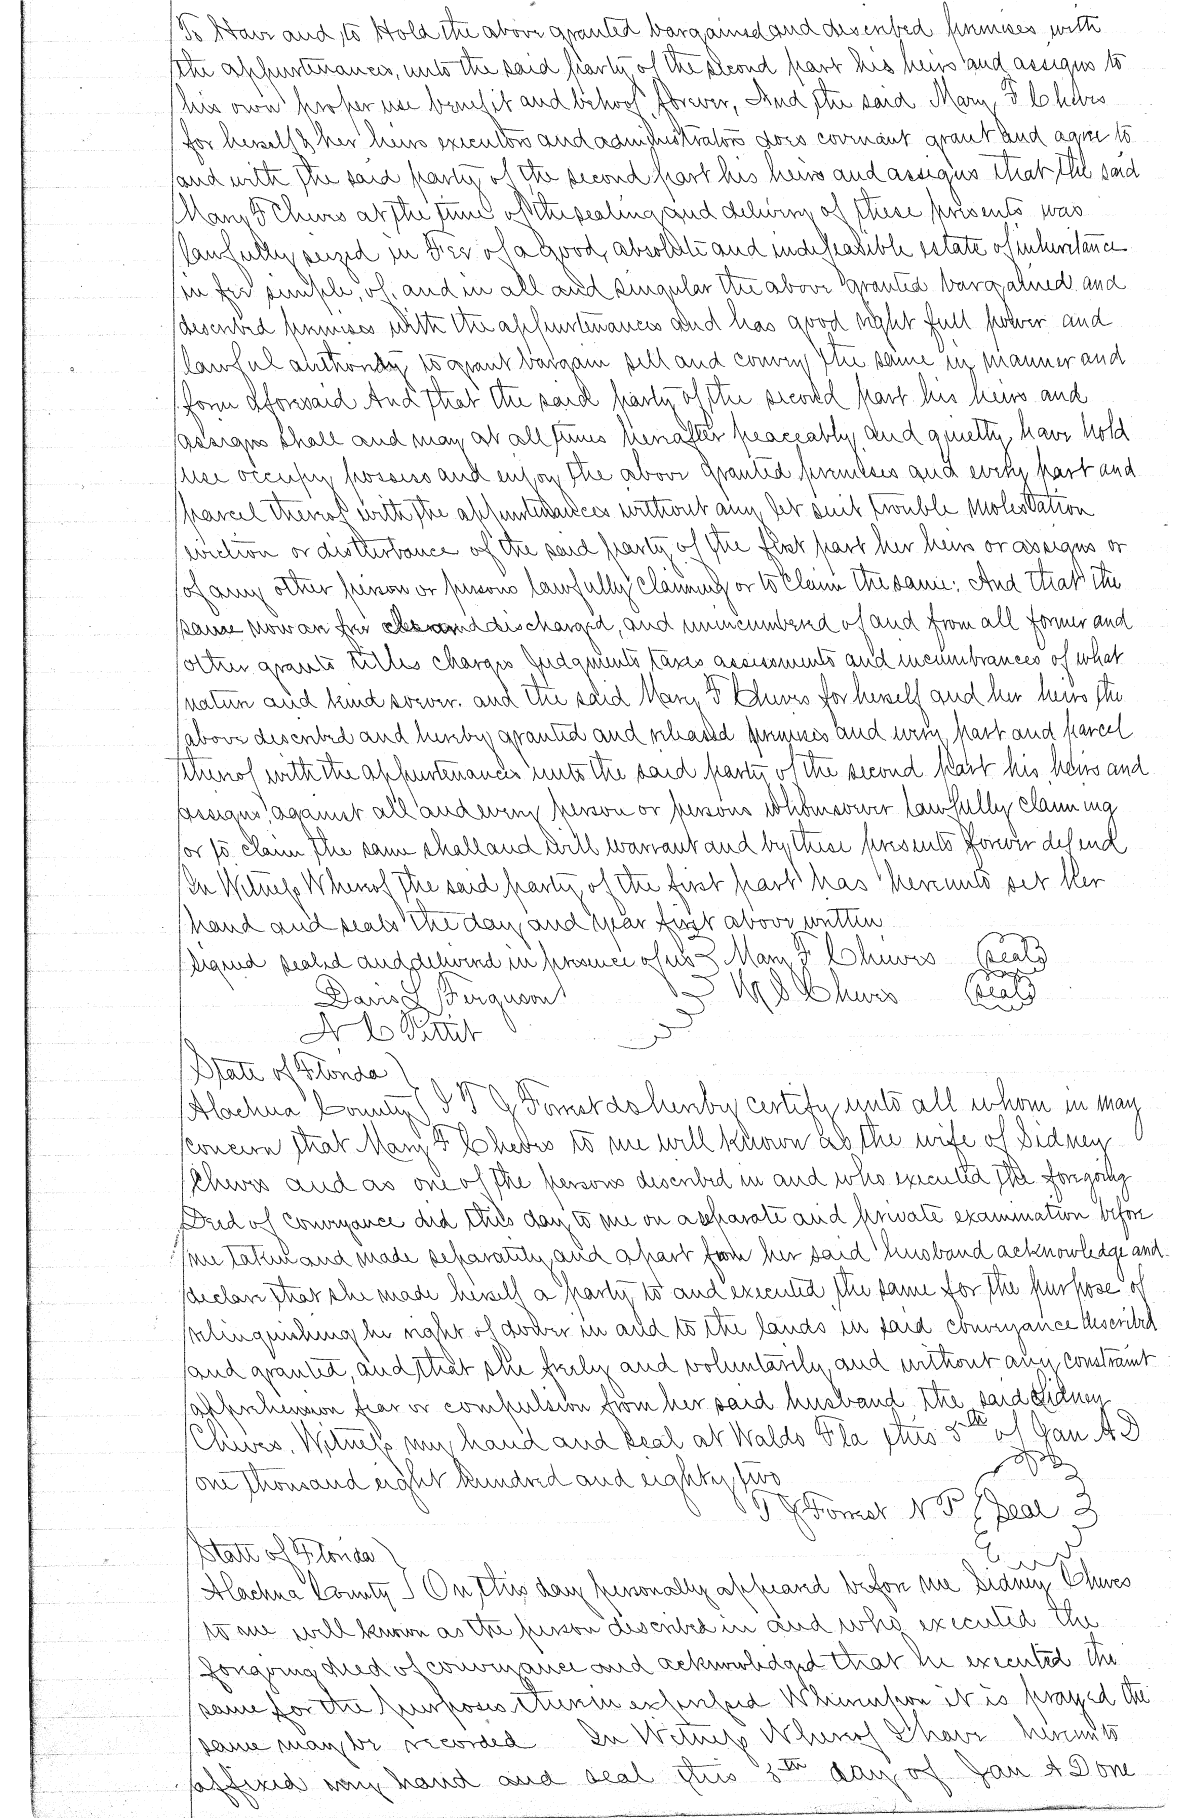 To Have and to Hold the above granted bargained and described premises with
the appurtenances, unto the said party of the second part his heirs and assigns to
his own proper use benefit and behoof forever, And the said Mary F Cheves
for herself & her heirs executors and administrators does covenant grant and agree to
and with the said party of the second part his heirs and assigns that the said
Mary F Cheves at the time of the sealing and delivery of these presents was
lawfully seized in Fee of a good, absolute and indefeasible estate of inheritance
in fee simple, of, and in all and singular the above granted bargained and
described premises with the appurtenances and has good right full power and
lawful authority to grant bargain sell and convey the same in manner and
form aforesaid And that the said party of the second part his heirs and
assigns shall and may at all times hereafter peaceably and quietly have hold
use occupy possess and enjoy the above granted premises and every part and
parcel thereof with the appurtenances without any let suit trouble molestation
eviction or disturbance of the said party of the first part her heirs or assigns or
of any other person or persons lawfully claiming or to claim the same: And that the
same now are free and discharged, and unincumbered of and from all former and
other grants titles charges Judgments taxes assessments and incumbrances of what
nature and kind soever. and the said Mary F Cheves for herself and her heirs the
above described and hereby granted and released premises and every part and parcel
thereof with the appurtenances unto the said party of the second part his heirs and
assigns against all and every person or persons whomsoever lawfully claiming
or to claim the same shall and will warrant and by these presents forever defend
In Witness Whereof the said party of the first part has hereunto set her
hand and seals the day and year first above written
signed sealed and delivered in presence of us Mary F Cheves (seal)
Davis L Ferguson W S Cheves (seal)
N C Pettit
State of Florida
Alachua County I T J Forrest do hereby certify unto all whom in may
concern that Mary F Cheves to me well known as the wife of Sidney
Cheves and as one of the persons described in and who executed the foregoing
Deed of conveyance did this day to me on a separate and private examination before
me taken and made separately and apart from her said husband acknowledge and
declare that she made herself a party to and executed the same for the purpose of
relinquishing he right of dower in and to the lands in said conveyance described
and granted, and that she freely and voluntarily and without any constraint
apprehension fear or compulsion from her said husband the said Sidney
Cheves. Witness my hand and seal at Waldo Fla this 5th of Jan A D
one thousand eight hundred and eighty two
T J Forrest N P (Seal
State of Florida
Alachua County On this day personally appeared before me Sidney Cheves
to me well known as the person described in and who executed the
forgoing deed of conveyance and acknowledged that he executed the
same for the purposes therein expressed Whereupon it is prayed the
same may be recorded In Witness Whereof I have hereunto
affixed my hand and seal this 5th day of Jan A D one